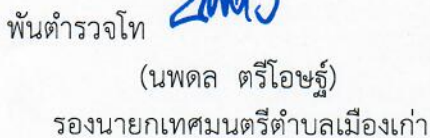 พันตำรวจโท
(นพดล ตรีโอษฐ์)
รองนายกเทศมนตรีตำบลเมืองเก่า